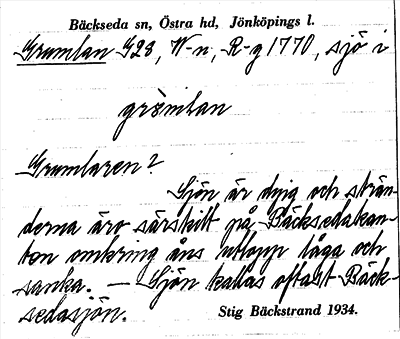 Bäckseda sn, Östra hd, Jönköpings l.
Grumlan G28, N-n, R-g 1770, sjö i
grömlan
Grumlaren?
Sjön är dyig och strän-
derna äro särskilt på Bäcksedakan-
ten omkring åns utlopp låga och
sanka. – Sjön kallas oftast Bäck-
sedasjön.
Stig Bäckstrand 1934.